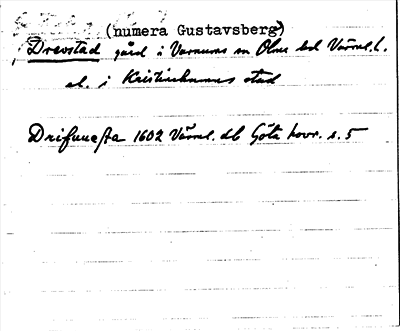 (numera Gustavsberg)
Drevstad gård i Varnums sn Ölme hd Värml. l.
el. i Kristinehamns stad
Drifuuesta 1602 Värml. db Göta hovr. s. 5